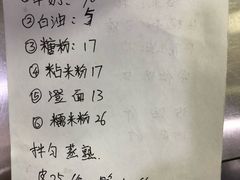 ②白油:5
③糖粉:17
④粘米粉17
⑤澄面13
⑥糯米粉26
拌匀 蒸熟.